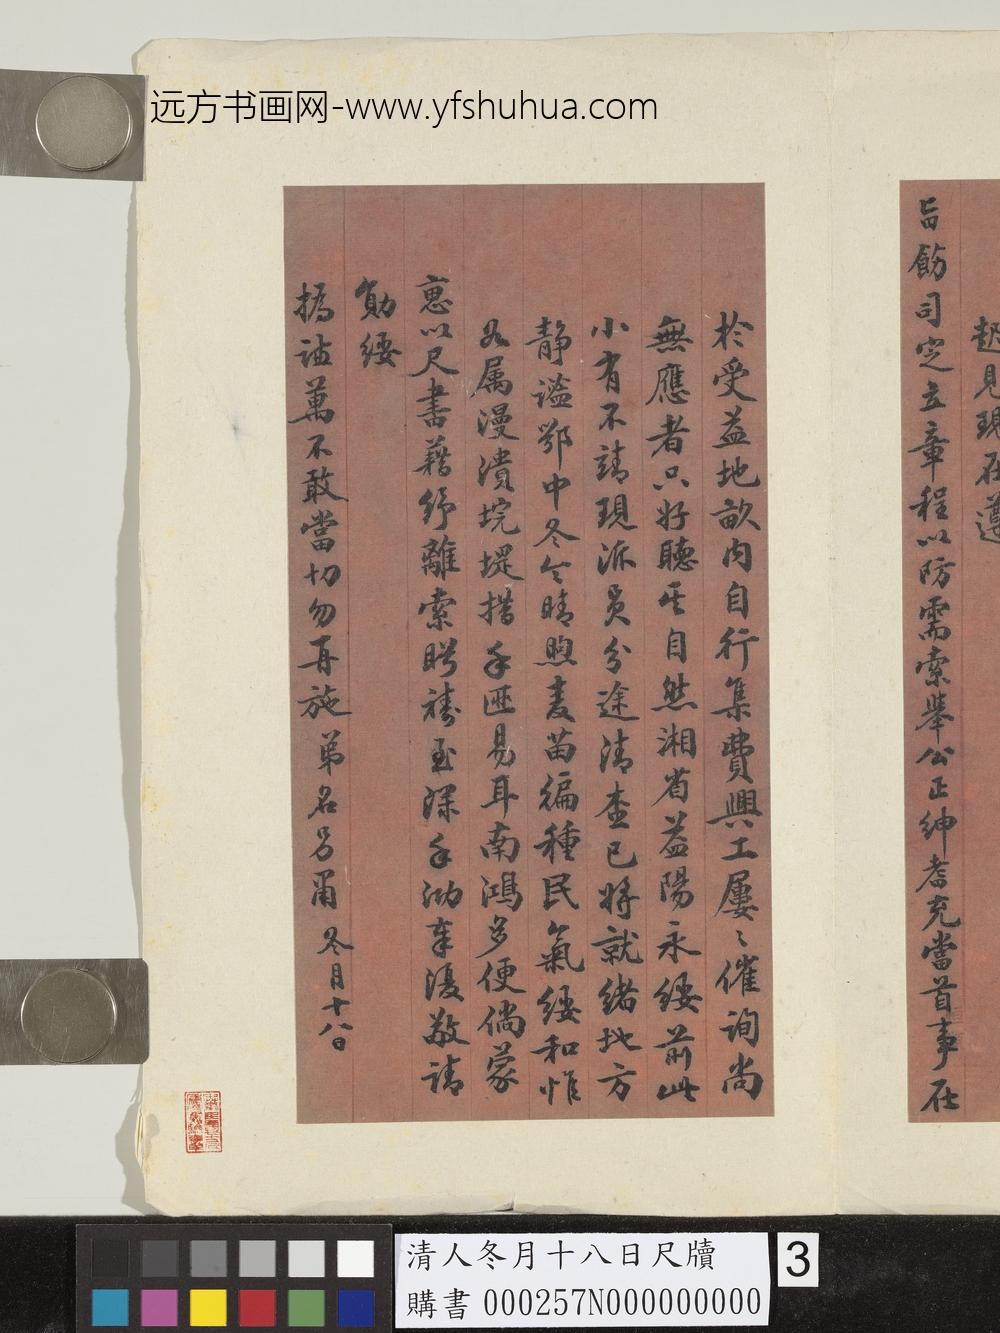 远方书画网-www.yfshuhua.com
趄見現在遵
旨飭司定立章程以防需索舉公正紳耆充當首事在
於受益地畝内自行集費興工屢〻催詢尚
無應者只好聽其自然湘省益陽永綏前此
小有不靖現派員分途清查已將就緒地方
静謐鄂中冬令晴煦麦苗徧種民氣綏和惟
為属漫潰垸堤措手匪易耳南鴻多便倘蒙
惠以尺書藉紓離索盼禱至深手泐奉復敬請
勛綏
撝詰萬不敢當切勿再施 弟名另肅 冬月十八日
清人冬月十八日尺牘
購書 000257N000000000
3